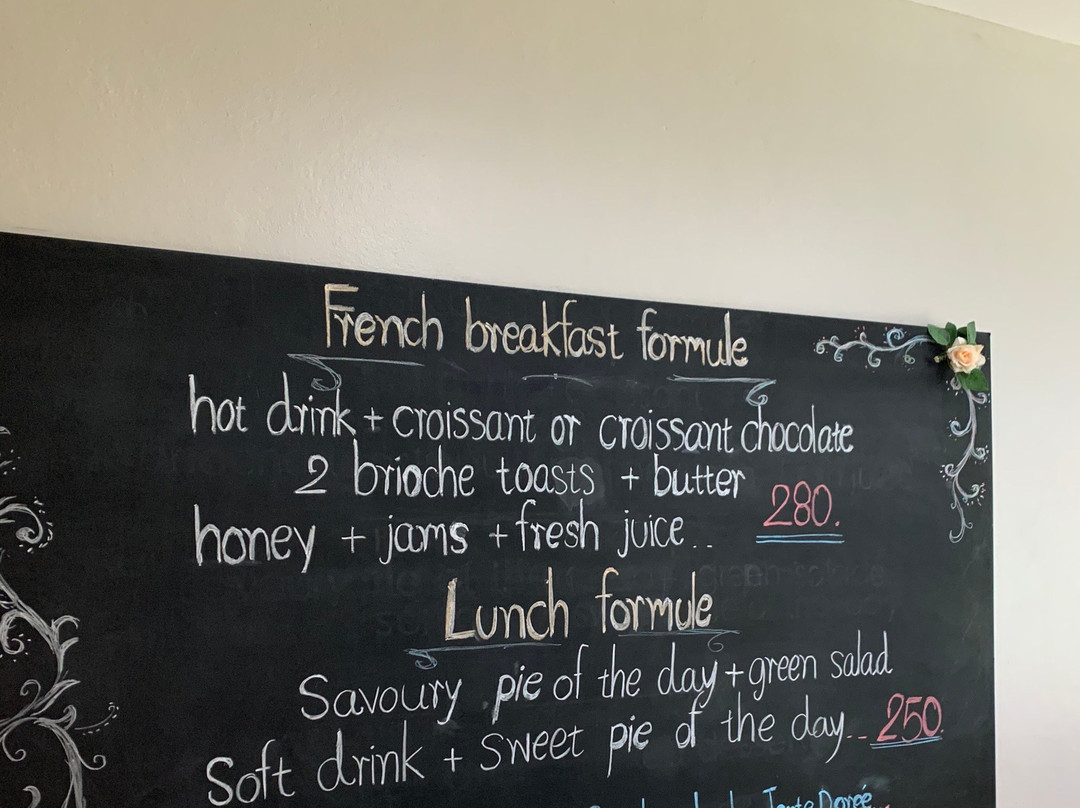 French breakfast formule
hot drink + croissant or croissant chocolate
2 brioche toasts + butter
honey + jams + fresh juice.. 280.
Lunch formule
Savoury pie of the day + green salad
Soft drink + sweet pie of the day... 250.